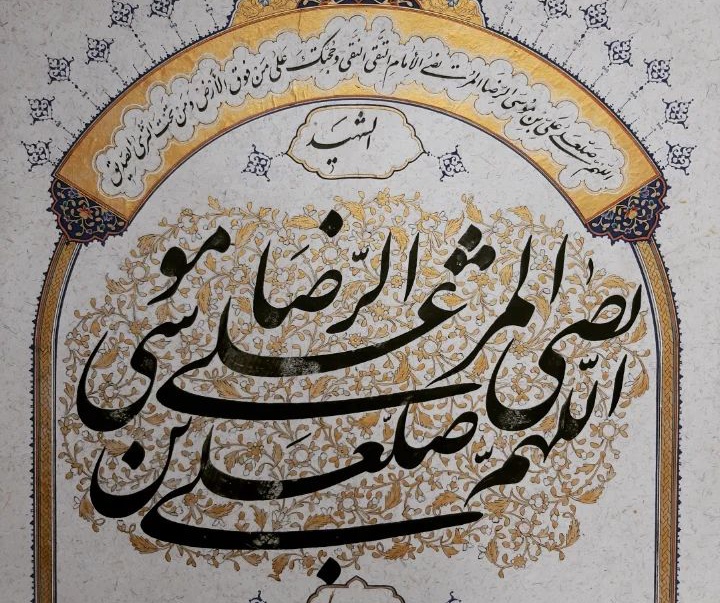 اللهم صل علی علی بن موسی الرضا المرتضی الأمام التقی النقی و حجتک علی من فوق الأرض و من تحت الثری الصدیق
الشهید
اللّهمّ صلّ علی علی بن موسی الرّضا المرتضی